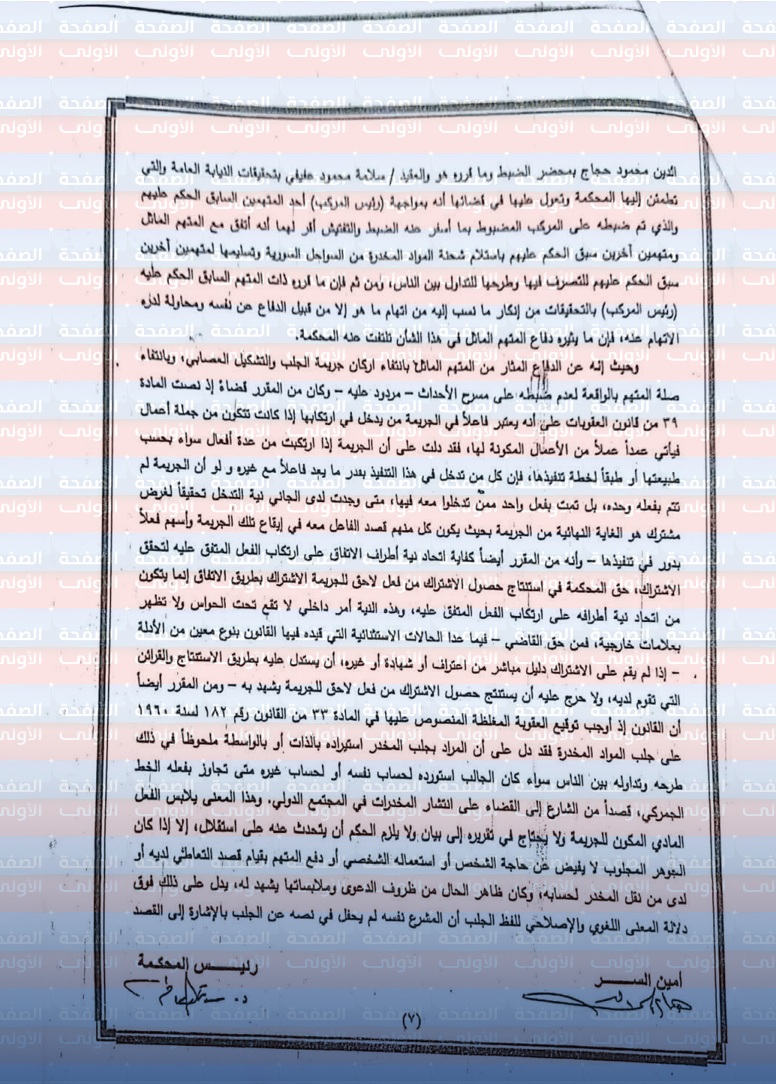 الدين محمود حجاج بمحضر الضبط وما قرره هو والعقيد / سلامة محمود عفيفي بتحقيقات النيابة العامة والتي
تطمئن إليها المحكمة وتعول عليها في قضائها أنه بمواجهة (رئيس المركب) أحد المتهمين السابق الحكم عليهم
والذي تم ضبطه على المركب المضبوط بما أسفر عنه الضبط والتفتيش أقر لهما أنه أتفق مع المتهم الماثل
ومتهمين أخرين سبق الحكم عليهم باستلام شحنة المواد المخدرة من السواحل السورية وتسليمها لمتهمين أخرين
سبق الحكم عليهم للتصرف فيها وطرحها للتداول بين الناس، ومن ثم فإن ما قرره ذات المتهم السابق الحكم عليه
(رئيس المركب) بالتحقيقات من إنكار ما نسب إليه من اتهام ما هو إلا من قبيل الدفاع عن نفسه ومحاولة لدرء
الاتهام عنه، فإن ما يثيره دفاع المتهم الماثل في هذا الشأن تلتفت عنه المحكمة.
وحيث إنه عن الدفاع المثار من المتهم الماثل بانتفاء اركان جريمة الجلب والتشكيل العصابي، وبانتفاء
صلة المتهم بالواقعة لعدم ضبطه على مسرح الأحداث – مردود عليه – وكان من المقرر قضاءً إذ نصت المادة
٣٩ من قانون العقوبات على أنه يعتبر فاعلاً في الجريمة من يدخل في ارتكابها إذا كانت تتكون من جملة أعمال
فيأتي عمداً عملاً من الأعمال المكونة لها، فقد دلت على أن الجريمة إذا ارتكبت من عدة أفعال سواء بحسب
طبيعتها أو طبقاً لخطة تنفيذها، فإن كل من تدخل في هذا التنفيذ بقدر ما يعد فاعلاً مع غيره و لو أن الجريمة لم
تتم بفعله وحده، بل تمت بفعل واحد ممن تدخلوا معه فيها، متى وجدت لدى الجاني نية التدخل تحقيقاً لغرض
مشترك هو الغاية النهائية من الجريمة بحيث يكون كل منهم قصد الفاعل معه في إيقاع تلك الجريمة وأسهم فعلاً
بدور في تنفيذها – وأنه من المقرر أيضاً كفاية اتحاد نية أطراف الاتفاق على ارتكاب الفعل المتفق عليه لتحقق
الاشتراك، حق المحكمة في استنتاج حصول الاشتراك من فعل لاحق للجريمة الاشتراك بطريق الاتفاق إنما يتكون
من اتحاد نية أطرافه على ارتكاب الفعل المتفق عليه، وهذه النية أمر داخلي لا تقع تحت الحواس ولا تظهر
بعلامات خارجية، فمن حق القاضي – فيما عدا الحالات الاستثنائية التي قيده فيها القانون بنوع معين من الأدلة
– إذا لم يقم على الاشتراك دليل مباشر من اعتراف أو شهادة أو غيره، أن يستدل عليه بطريق الاستنتاج والقرائن
التي تقوم لديه، ولا حرج عليه أن يستنتج حصول الاشتراك من فعل لاحق للجريمة يشهد به – ومن المقرر أيضاً
أن القانون إذ أوجب توقيع العقوبة المغلظة المنصوص عليها في المادة ٣٣ من القانون رقم ١٨٢ لسنة ١٩٦٠
على جلب المواد المخدرة فقد دل على أن المراد بجلب المخدر استيراده بالذات أو بالواسطة ملحوظاً في ذلك
طرحه وتداوله بين الناس سواء كان الجالب استورده لحساب نفسه أو لحساب غيره متى تجاوز بفعله الخط
الجمركي، قصداً من الشارع إلى القضاء على انتشار المخدرات في المجتمع الدولي، وهذا المعنى يلابس الفعل
المادي المكون للجريمة ولا يحتاج في تقريره إلى بيان ولا يلزم الحكم أن يتحدث عنه على استقلال، إلا إذا كان
الجوهر المجلوب لا يفيض عن حاجة الشخص أو استعماله الشخصي أو دفع المتهم بقيام قصد التعاطي لديه أو
لدى من نقل المخدر لحسابه، وكان ظاهر الحال من ظروف الدعوى وملابساتها يشهد له، يدل على ذلك فوق
دلالة المعنى اللغوي والإصلاحي للفظ الجلب أن المشرع نفسه لم يحفل في نصه عن الجلب بالإشارة إلى القصد
أمين الســـر
رئيـــس المحكمة
(٧)
الصفحة الأولى